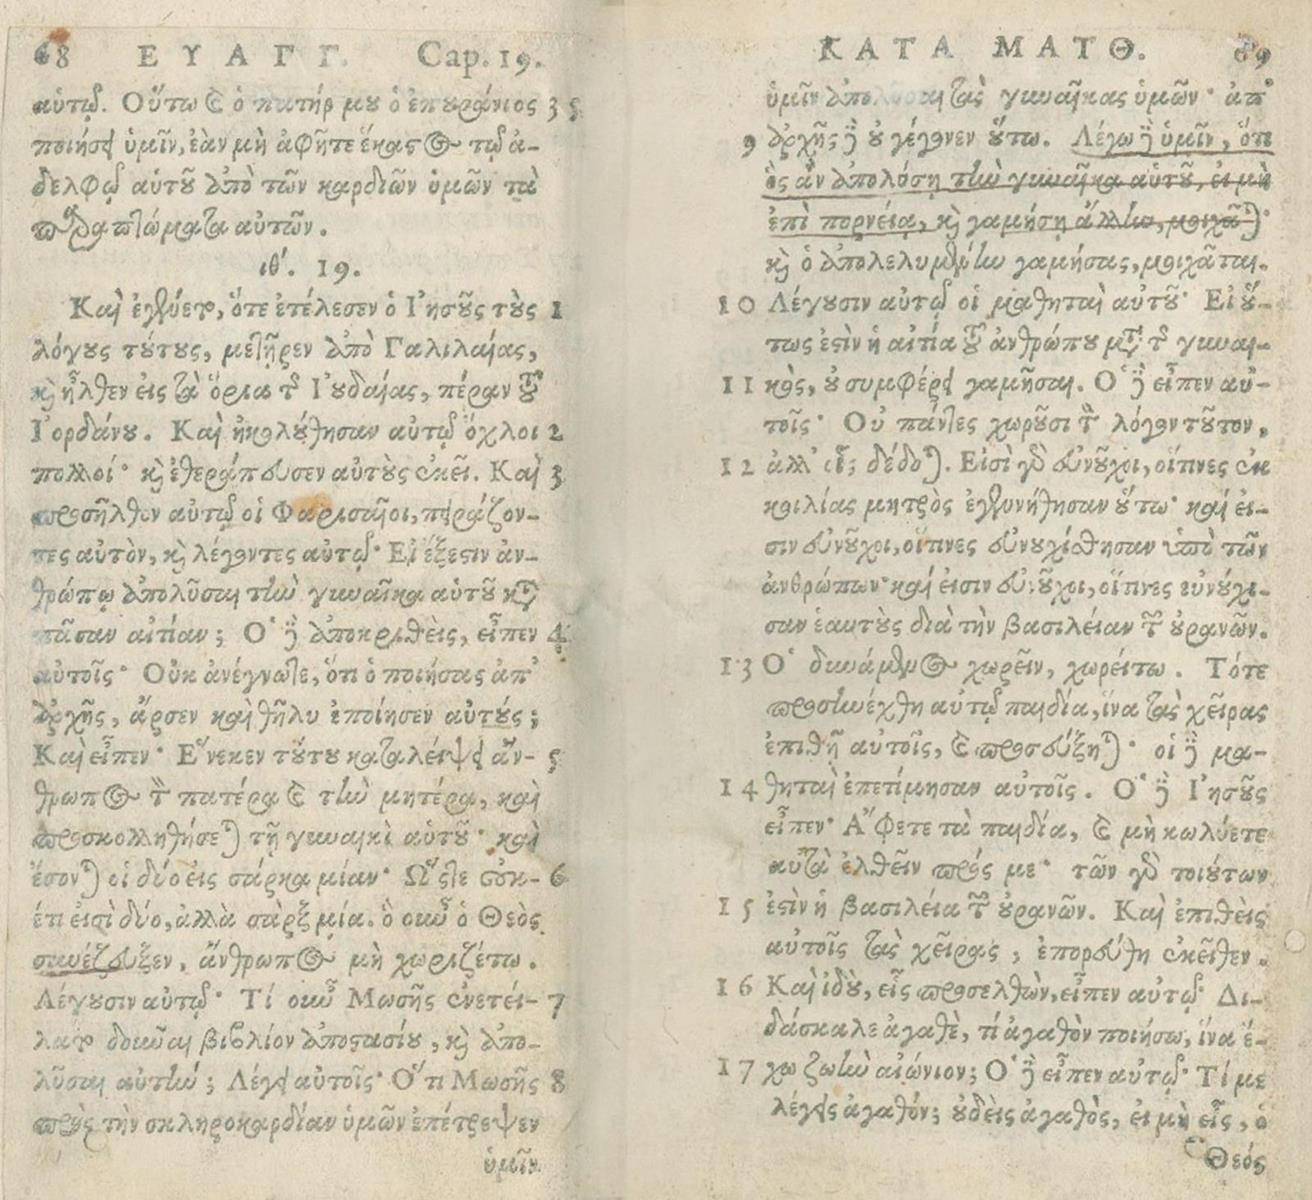 68 ΕΥΑΓΓ. Cap. 19.
αὐτῷ. Οὕτω ϗ ὁ πατήρ μου ὁ ἐπουράνιος 35
ποιήσει ὑμῖν, ἐὰν μὴ ἀφῆτε ἕκαστος τῷ ἀ-
δελφῷ αὐτοῦ ἀπὸ τῶν καρδιῶν ὑμῶν τὰ
παραπτώματα αὐτῶν.
ιθ΄. 19.
Καὶ ἐγένετο, ὅτε ἐτέλεσεν ὁ Ἰησοῦς τοὺς 1
λόγους τούτους, μετῆρεν ἀπὸ Γαλιλαίας,
ϗ ἦλθεν εἰς τὰ ὅρια τῆς Ἰουδαίας, πέραν τοῦ
Ἰορδάνου. Καὶ ἠκολούθησαν αὐτῷ ὄχλοι 2
πολλοί· ϗ ἐθεράπευσεν αὐτοὺς ἐκεῖ. Καὶ 3
προσῆλθον αὐτῷ οἱ Φαρισαῖοι, πειράζον-
τες αὐτὸν, ϗ λέγοντες αὐτῷ· Εἰ ἔξεστιν ἀν-
θρώπῳ ἀπολῦσαι τὴν γυναῖκα αὑτοῦ κατὰ
πᾶσαν αἰτίαν; Ὁ δὲ ἀποκριθεὶς, εἶπεν 4
αὐτοῖς· Οὐκ ἀνέγνωτε, ὅτι ὁ ποιήσας ἀπ᾽
ἀρχῆς, ἄρσεν καὶ θῆλυ ἐποίησεν αὐτούς;
Καὶ εἶπεν· Ἕνεκεν τούτου καταλείψει ἄν- 5
θρωπος τὸν πατέρα ϗ τὴν μητέρα, καὶ
προσκολληθήσεται τῇ γυναικὶ αὑτοῦ· καὶ
ἔσονται οἱ δύο εἰς σάρκα μίαν· Ὥστε οὐκ- 6
έτι εἰσὶ δύο, ἀλλὰ σὰρξ μία. ὁ οὖν ὁ Θεὸς
συνέζευξεν, ἄνθρωπος μὴ χωριζέτω.
Λέγουσιν αὐτῷ· Τί οὖν Μωσῆς ἐνετεί- 7
λατο δοῦναι βιβλίον ἀποστασίου, ϗ ἀπο-
λῦσαι αὐτήν; Λέγει αὐτοῖς· Ὅτι Μωσῆς 8
πρὸς τὴν σκληροκαρδίαν ὑμῶν ἐπέτρεψεν
ὑμῖν
ΚΑΤΑ ΜΑΤΘ. 69
ὑμῖν ἀπολῦσαι τὰς γυναῖκας ὑμῶν· ἀπ᾽
9 ἀρχῆς δὲ οὐ γέγονεν οὕτω. Λέγω δὲ ὑμῖν, ὅτι
ὃς ἂν ἀπολύσῃ τὴν γυναῖκα αὑτοῦ, εἰ μὴ
ἐπὶ πορνείᾳ, ϗ γαμήσῃ ἄλλην, μοιχᾶται·
ϗ ὁ ἀπολελυμένην γαμήσας, μοιχᾶται.
10 Λέγουσιν αὐτῷ οἱ μαθηταὶ αὐτοῦ· Εἰ οὕ-
τως ἐστὶν ἡ αἰτία τοῦ ἀνθρώπου μετὰ τῆς γυναι-
11 κὸς, οὐ συμφέρει γαμῆσαι. Ὁ δὲ εἶπεν αὐ-
τοῖς· Οὐ πάντες χωροῦσι τὸν λόγον τοῦτον,
12 ἀλλ᾽ οἷς δέδοται. Εἰσὶ γὰρ εὐνοῦχοι, οἵτινες ἐκ
κοιλίας μητρὸς ἐγεννήθησαν οὕτω· καί εἰ-
σιν εὐνοῦχοι, οἵτινες εὐνουχίσθησαν ὑπὸ τῶν
ἀνθρώπων· καί εἰσιν εὐνοῦχοι, οἵτινες εὐνούχι-
σαν ἑαυτοὺς διὰ τὴν βασιλείαν τῶν οὐρανῶν.
13 Ὁ δυνάμενος χωρεῖν, χωρείτω. Τότε
προσηνέχθη αὐτῷ παιδία, ἵνα τὰς χεῖρας
ἐπιθῇ αὐτοῖς, ϗ προσεύξηται· οἱ δὲ μα-
14 θηταὶ ἐπετίμησαν αὐτοῖς. Ὁ δὲ Ἰησοῦς
εἶπεν· Ἄφετε τὰ παιδία, ϗ μὴ κωλύετε
αὐτὰ ἐλθεῖν πρός με· τῶν γὰρ τοιούτων
15 ἐστὶν ἡ βασιλεία τῶν οὐρανῶν. Καὶ ἐπιθεὶς
αὐτοῖς τὰς χεῖρας, ἐπορεύθη ἐκεῖθεν.
16 Καὶ ἰδοὺ, εἷς προσελθὼν, εἶπεν αὐτῷ· Δι-
δάσκαλε ἀγαθὲ, τί ἀγαθὸν ποιήσω, ἵνα ἔ-
17 χω ζωὴν αἰώνιον; Ὁ δὲ εἶπεν αὐτῷ· Τί με
λέγεις ἀγαθόν; οὐδεὶς ἀγαθὸς, εἰ μὴ εἷς, ὁ
Θεός